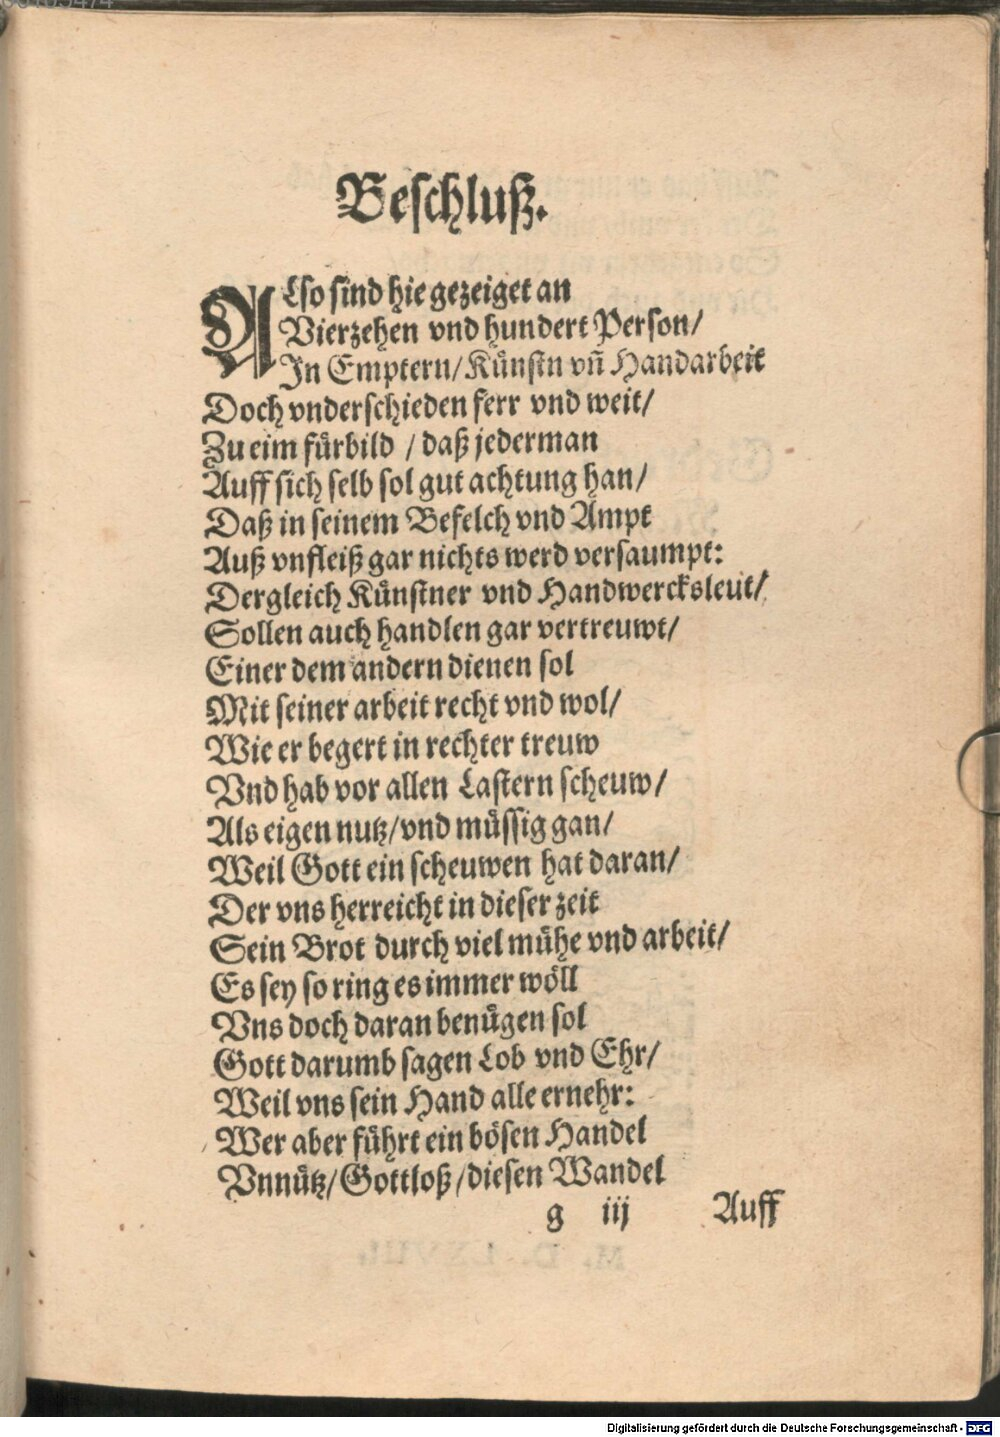 Beschluß.
ALso sind hie gezeiget an
Vierzehen vnd hundert Person/
In Emptern/Kuͤnstn vn̄ Handarbeit
Doch vnderschieden ferr vnd weit/
Zu eim fuͤrbild / daß jederman
Auff sich selb sol gut achtung han/
Daß in seinem Befelch vnd Ampt
Auß vnfleiß gar nichts werd versaumpt:
Dergleich Kuͤnstner vnd Handwercksleut/
Sollen auch handlen gar vertreuwt/
Einer dem andern dienen sol
Mit seiner arbeit recht vnd wol/
Wie er begert in rechter treuw
Vnd hab vor allen Lastern scheuw/
Als eigen nutz/vnd muͤssig gan/
Weil Gott ein scheuwen hat daran/
Der vns herreicht in dieser zeit
Sein Brot durch viel muͤhe vnd arbeit/
Es sey so ring es immer woͤll
Vns doch daran benuͤgen sol
Gott darumb sagen Lob vnd Ehr/
Weil vns sein Hand alle ernehr:
Wer aber fuͤhrt ein boͤsen Handel
Vnnuͤtz/Gottloß/diesen Wandel
g iij Auff
Digitalisierung gefördert durch die Deutsche Forschungsgemeinschaft - DFG